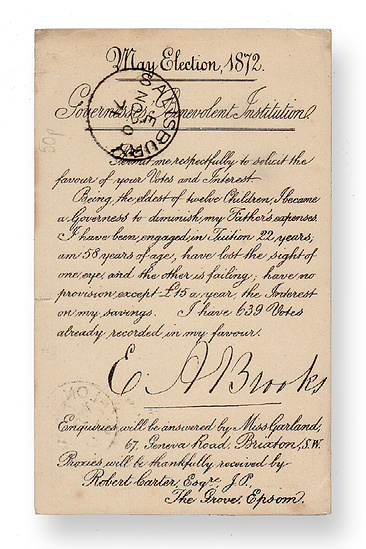 May Election, 1872.
Governesses Benevolent Institution.
AMESBURY
E
NO 20
Permit me respectfully to solicit the
favour of your Votes and Interest
Being, the eldest of twelve Children, I became
a Governess to diminish, my Father's expenses.
I have been, engaged, in Tuition 22 years;
am 58 years of age, have lost the sight of
one eye, and the other is failing; have no
provision, except £15 a year, the Interest
on my savings. I have 639 Votes
already recorded in my favour.
E. A Brooks
Enquiries will be answered by Miss Garland,
67, Geneva Road, Brixton, S.W.
Proxies will be thankfully received by
Robert Carter, Esqre. J.P.
The Grove, Epsom.
50p